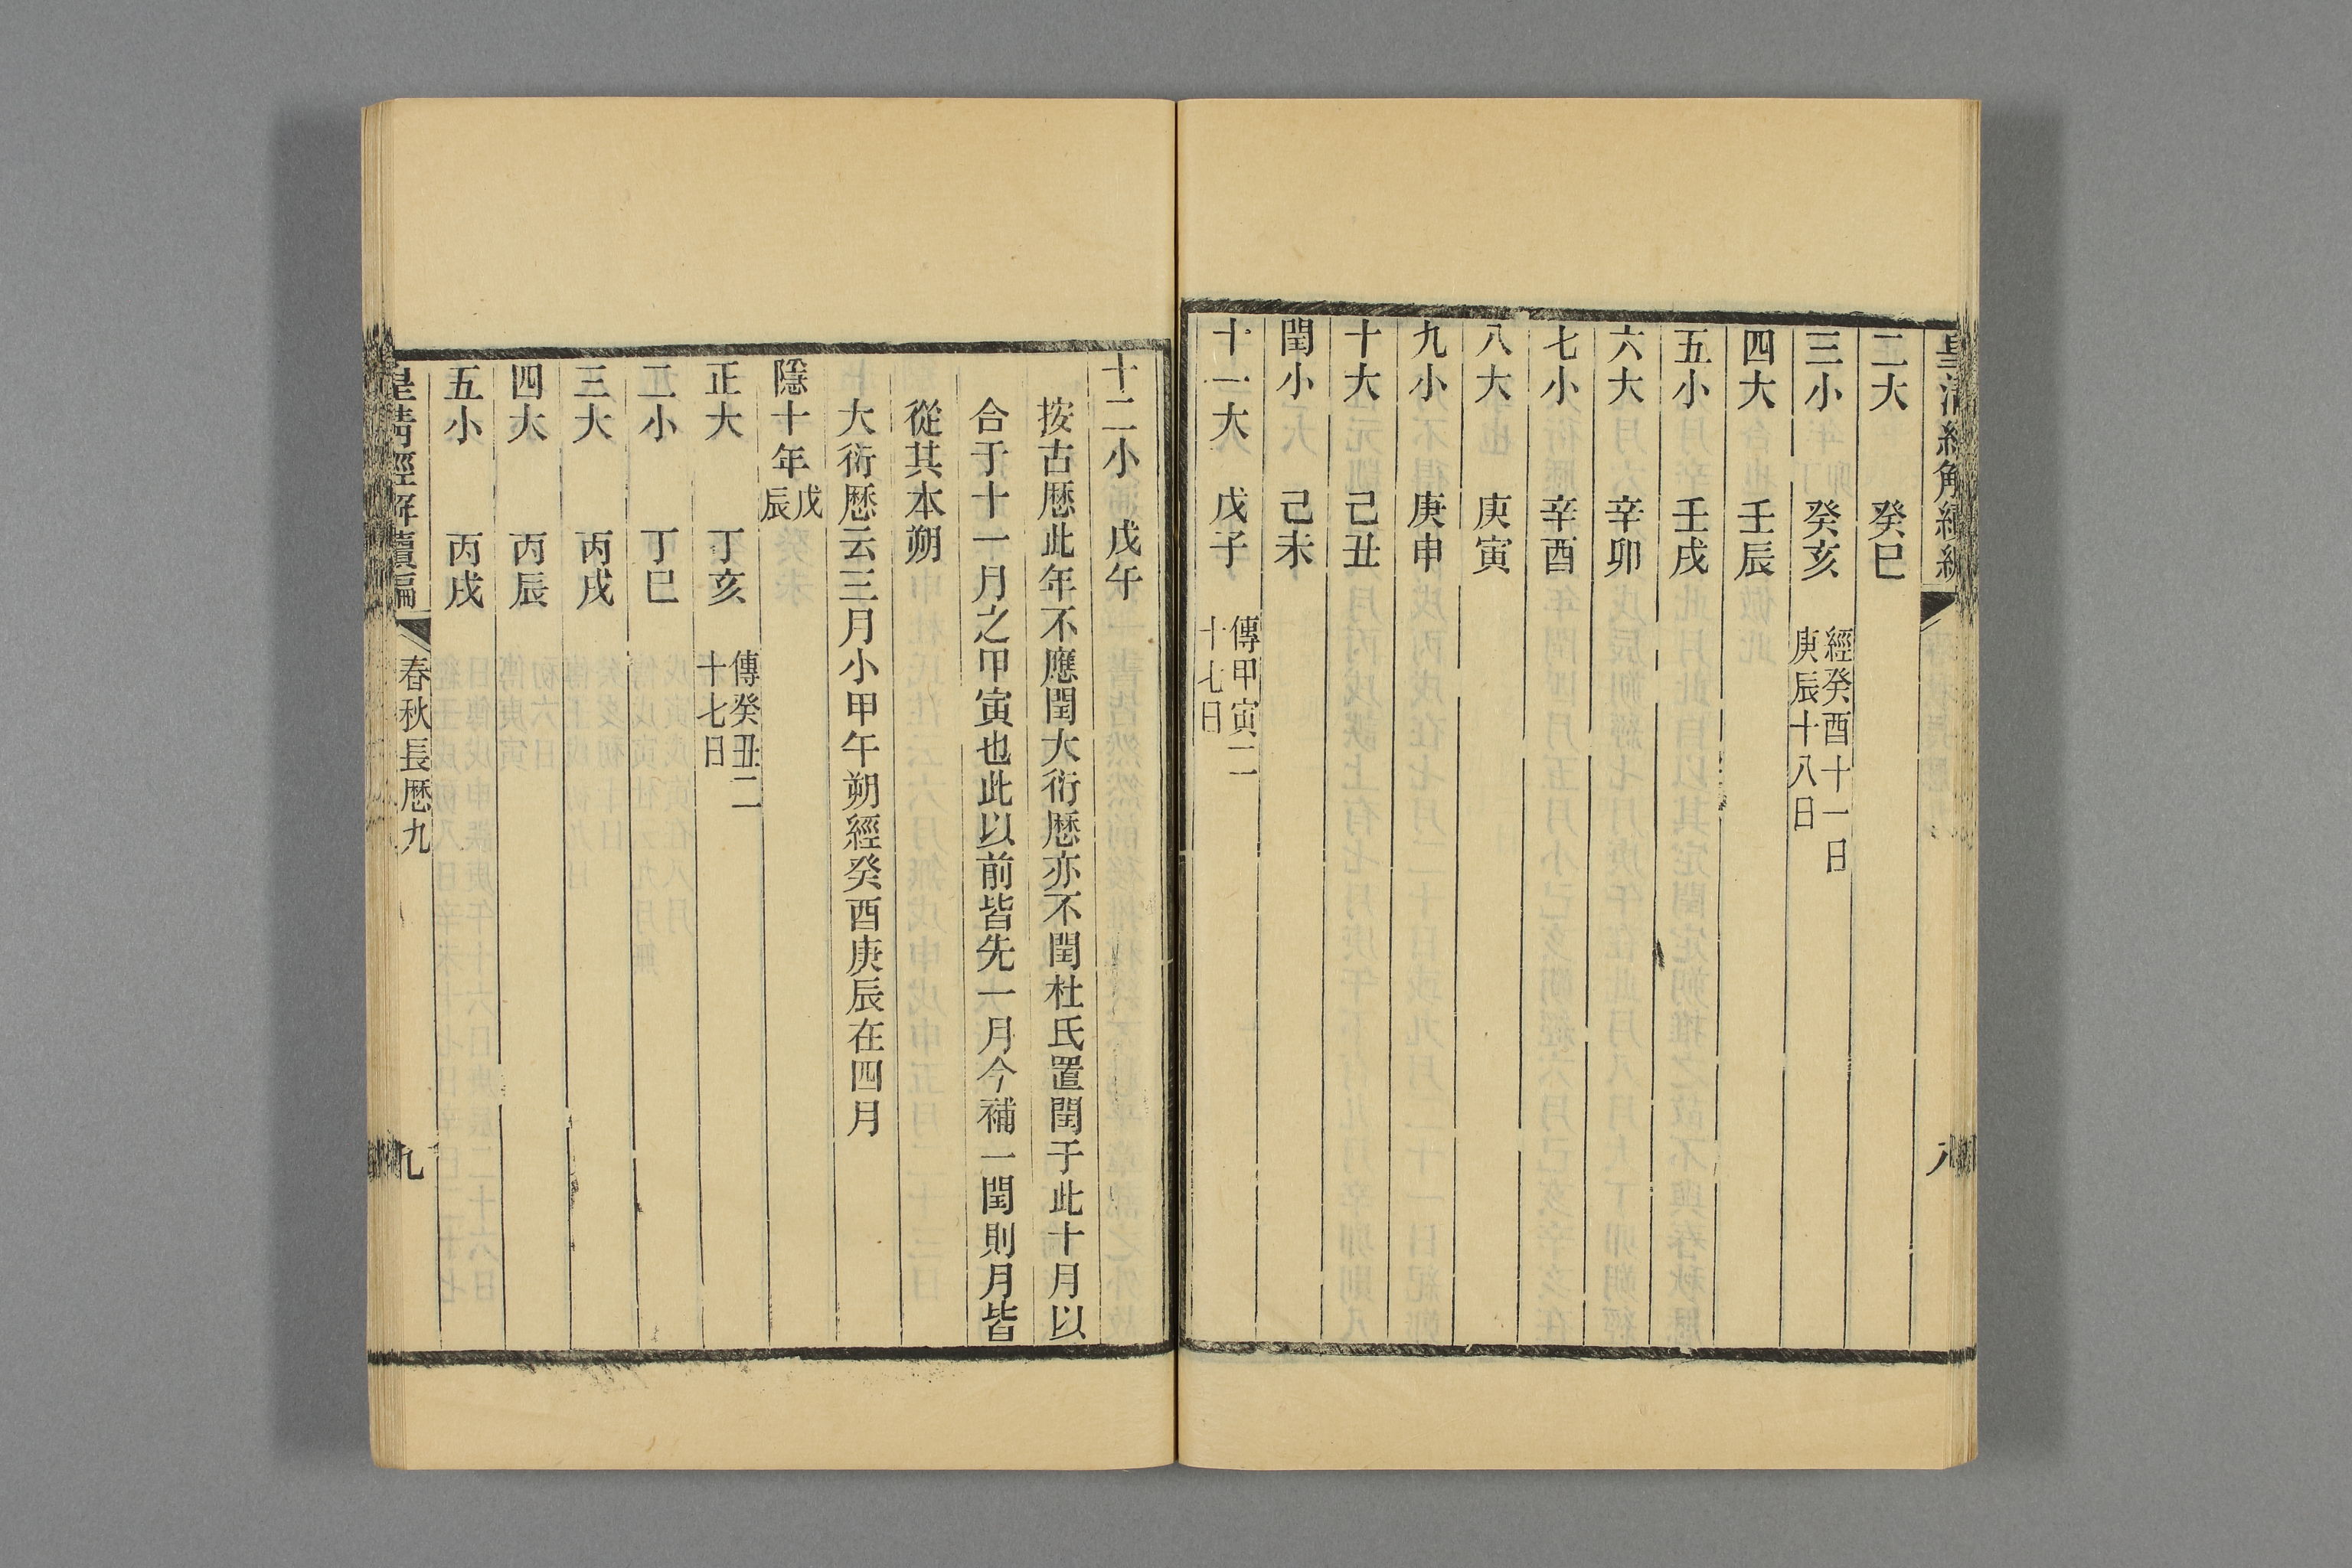 二大　癸巳
三小　癸亥　經癸酉十一日
庚辰十八日
四大　壬辰
五小　壬戌
六大　辛卯
七小　辛酉
八大　庚寅
九小　庚申
十大　己丑
閏小　己未
十一大　戊子　傳甲寅二
十七日
十二小　戊午
按古厯此年不應閏大衍厯亦不閏杜氏置閏于此十月以
合于十一月之甲寅也此以前皆先一月今補一閏則月皆
從其本朔
大衍厯云三月小甲午朔經癸酉庚辰在四月
隱十年戊
辰
正大　丁亥　傳癸丑二
十七日
二小　丁巳
三大　丙戌
四大　丙辰
五小　丙戌
皇清經解續編　春秋長厯九　九